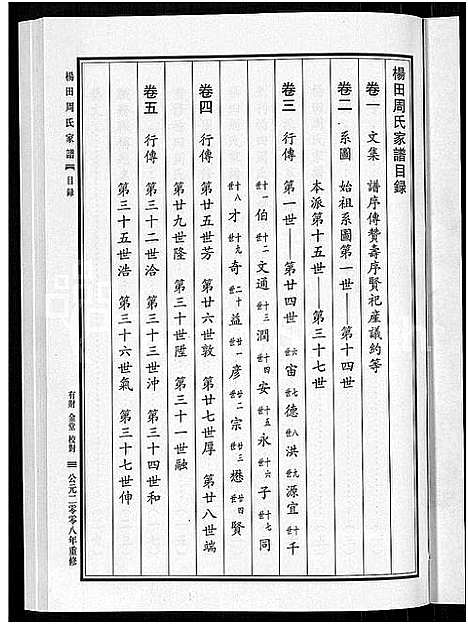 楊田周氏家譜目録
卷一 文集 譜序傳贊壽序賢祀産議約等
卷二 系圖 始祖系圖第一世——第十四世
本派第十五世——第三十七世
卷三 行傳 第一世——第廿四世 六世宙 七世德 八世洪 九世源宜 十世千
十一世伯 十二世文通 十三世潤 十四世安 十五世永 十六世子 十七世同
十八世才 十九世奇 二十世益 廿一世彦 廿二世宗 廿三世懋 廿四世賢
卷四 行傳 第廿五世芳 第廿六世敦 第廿七世厚 第廿八世端
第廿九世隆 第三十世陞 第三十一世融
卷五 行傳 第三十二世洽 第三十三世沖 第三十四世和
第三十五世浩 第三十六世氣 第三十七世伸
楊田周氏家譜 目録 有財 金堂 校對 公元二零零八年重修